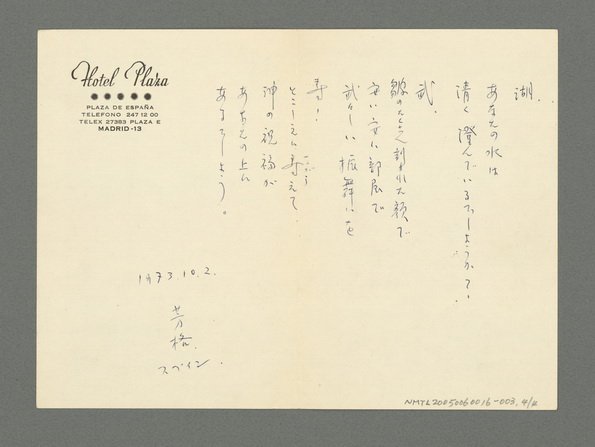 Hotel Plaza
PLAZA DE ESPAÑA
TELEFONO 247 12 00
TELEX 27383 PLAZA E
MADRID-13
湖、
あなたの水は
清く澄んでいるでしょうか?
武、
皺のたくさん刻まれた額で
安い安い部屋で
武々しい振舞いを
寿!
とこしえに寿えて
神の祝福が
あなたの上に
ありましょう。
1973.10.2.
芳格
スペイン
NMTL20050060016-003, 4/4